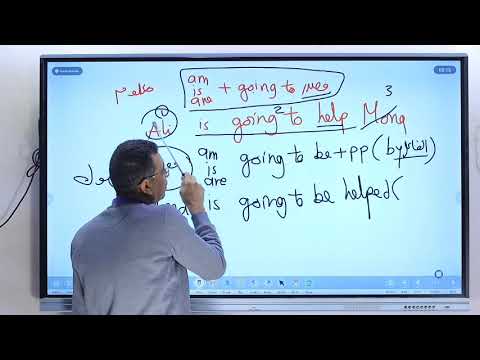 معلوم am is are + going to مصدر
① Ali is going to help Mona
2 3
am is are going to be + pp (by الفاعل)
is going to be helped (